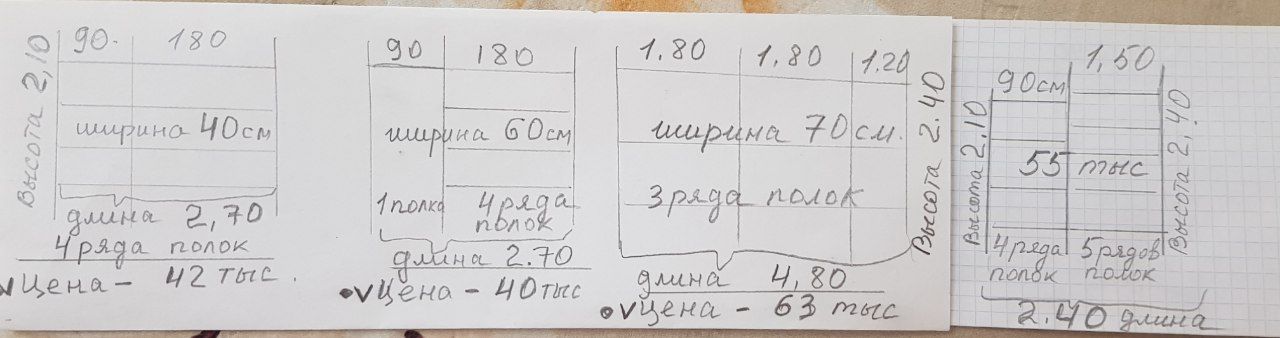 90. 180
Высота 2,10
ширина 40см
длина 2,70
4 ряда полок
Цена - 42 тыс.
90 180
ширина 60см
1 полка 4 ряда
полок
длина 2.70
Цена - 40 тыс
1.80 1.80 1.20
ширина 70 см.
3 ряда полок
Высота 2.40
длина 4,80
Цена - 63 тыс
1,50
90см
Высота 2.10
55 тыс
Высота 2,40
4 ряда 5 рядов
полок полок
2.40 длина